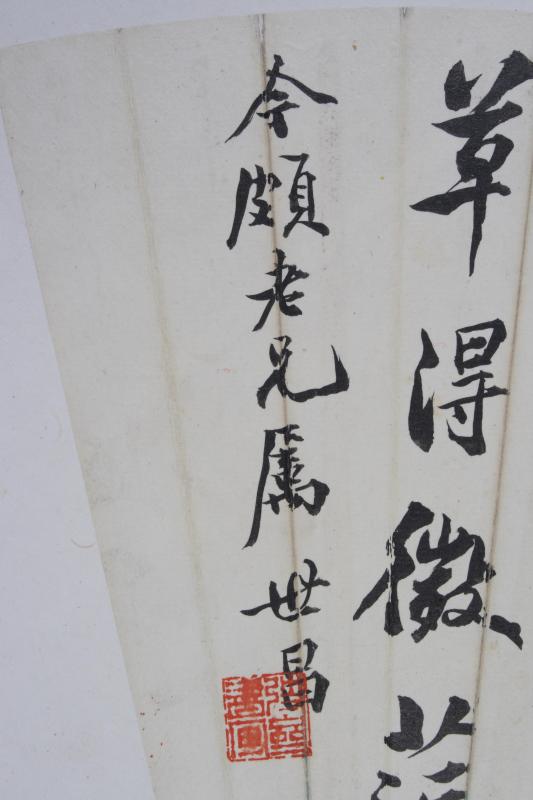 草得微
今頗老兄屬 世昌